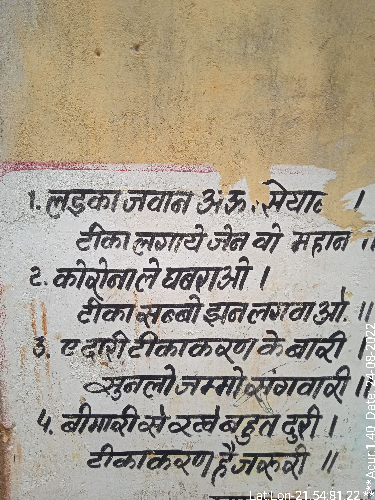 1. लइका जवान अऊ सेयान ।
टीका लगाये जेन वो महान ॥
2. कोरोना ले घबराओ ।
टीका सब्बो झन लगवाओ ॥
3. ए दारी टीकाकरण के बारी ।
सुनलो जम्मो संगवारी ॥
4. बीमारी से रखे बहुत दुरी ।
टीकाकरण है जरुरी ॥
Lat Lon-21.54:81.22
***Acur:1.40 Date:24-08-2022